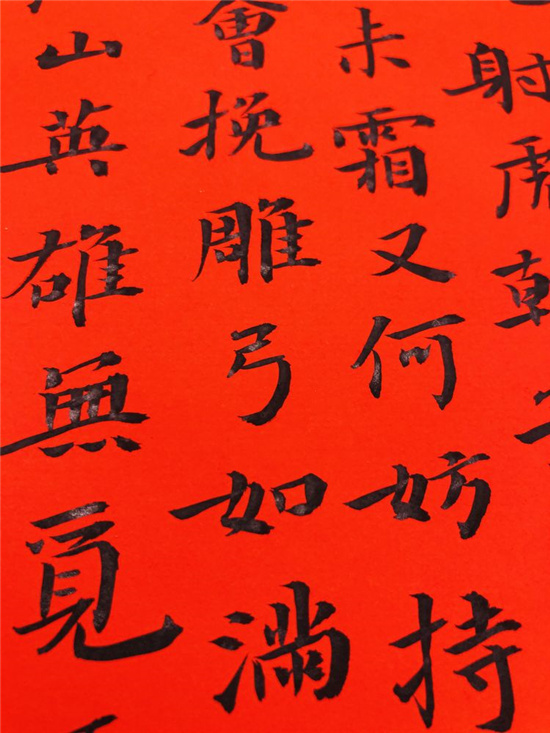 射虎
未霜又何妨持
會挽雕弓如滿
山英雄無覓